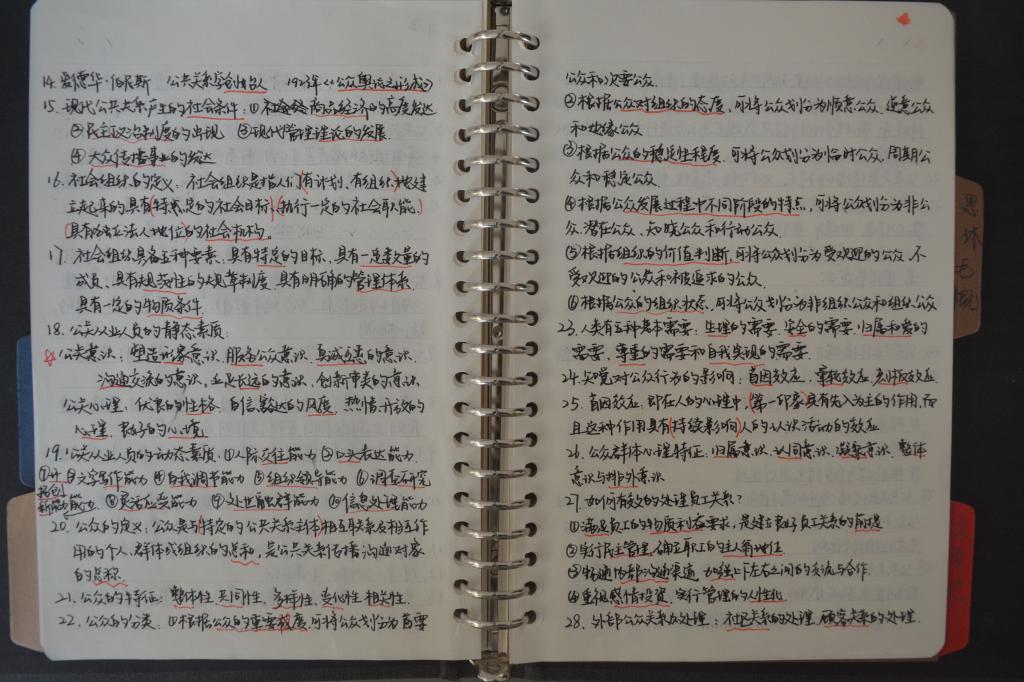 14. 爱德华·伯尼斯 公共关系学创始人 1923年《公众舆论之形成》
15. 现代公共关系产生的社会条件：①社会经商品经济的高度发达
②民主政治制度的出现 ③现代管理理论的发展
④大众传播事业的发达
16. 社会组织的定义：社会组织是指人们有计划、有组织地建
立起来的具有特定的社会目标，执行一定的社会职能，
具有独立法人地位的社会机构。
17. 社会组织具备五种要素：具有特定的目标、具有一定数量的
成员、具有规范性的规章制度、具有明确的管理体系、
具有一定的物质条件
18. 公关从业人员的静态素质：
公关意识：塑造形象意识、服务公众意识、真诚互惠的意识、
沟通交流的意识、立足长远的意识、创新审美的意识
公关心理：优良的性格、自信豁达的风度、热情开放的
心理、良好的心境
19. 公关从业人员的动态素质：①人际交往能力 ②口头表达能力
③文字写作能力 ④自我调节能力 ⑤组织领导能力 ⑥调查研究
能力 ⑧灵活应变能力 ⑨处世自控能力 ⑩信息处理能力
⑦开拓创新能力
20. 公众的定义：公众是与特定的公共关系主体相互联系及相互作
用的个人、群体或组织的总和，是公共关系传播沟通对象
的总称
21. 公众的特征：整体性、共同性、多样性、变化性、相关性
22. 公众的分类：①根据公众的重要程度，可将公众划分为首要
公众和次要公众
②根据公众对组织的态度，可将公众划分为顺意公众、逆意公众
和边缘公众
③根据公众的稳定性程度，可将公众划分为临时公众、周期公
众和稳定公众
④根据公众发展过程中不同阶段的特点，可将公众划分为非公
众、潜在公众、知晓公众和行动公众
⑤根据组织的价值判断，可将公众划分为受欢迎的公众、不
受欢迎的公众和被追求的公众
⑥根据公众的组织状态，可将公众划分为非组织公众和组织公众
23. 人类有五种基本需要：生理的需要、安全的需要、归属和爱的
需要、尊重的需要和自我实现的需要
24. 知觉对公众行为的影响：首因效应、晕轮效应、刻板效应
25. 首因效应：即在人的心理中，第一印象具有先入为主的作用，而
且这种作用具有持续影响人的认识活动的效应
26. 公众群体心理特征：归属意识、认同意识、凝聚意识、整体
意识与排外意识
27. 如何有效的处理员工关系？
①满足员工的物质利益要求，是建立良好员工关系的前提
②实行民主管理，确立职工的主人翁地位
③畅通内部沟通渠道，加强上下左右之间的交流与合作
④重视感情投资，实行管理的人性化
28. 外部公众关系处理：社区关系的处理、顾客关系的处理、
思修毛概